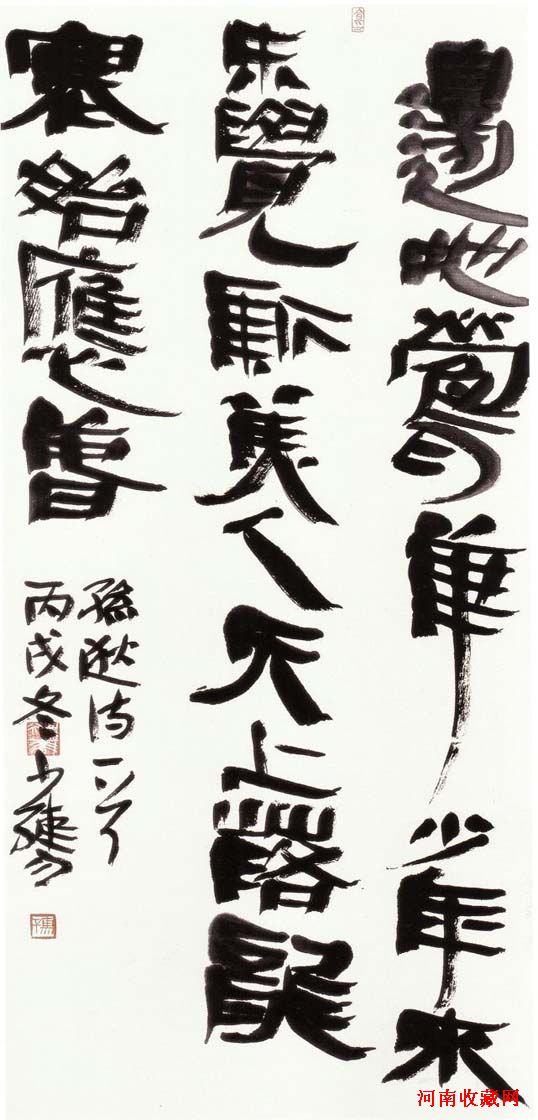 邊地鶯華少年來
未覺新美人天上落龍
塞始應春
孫逖詩一首
丙戌冬
河南收藏网